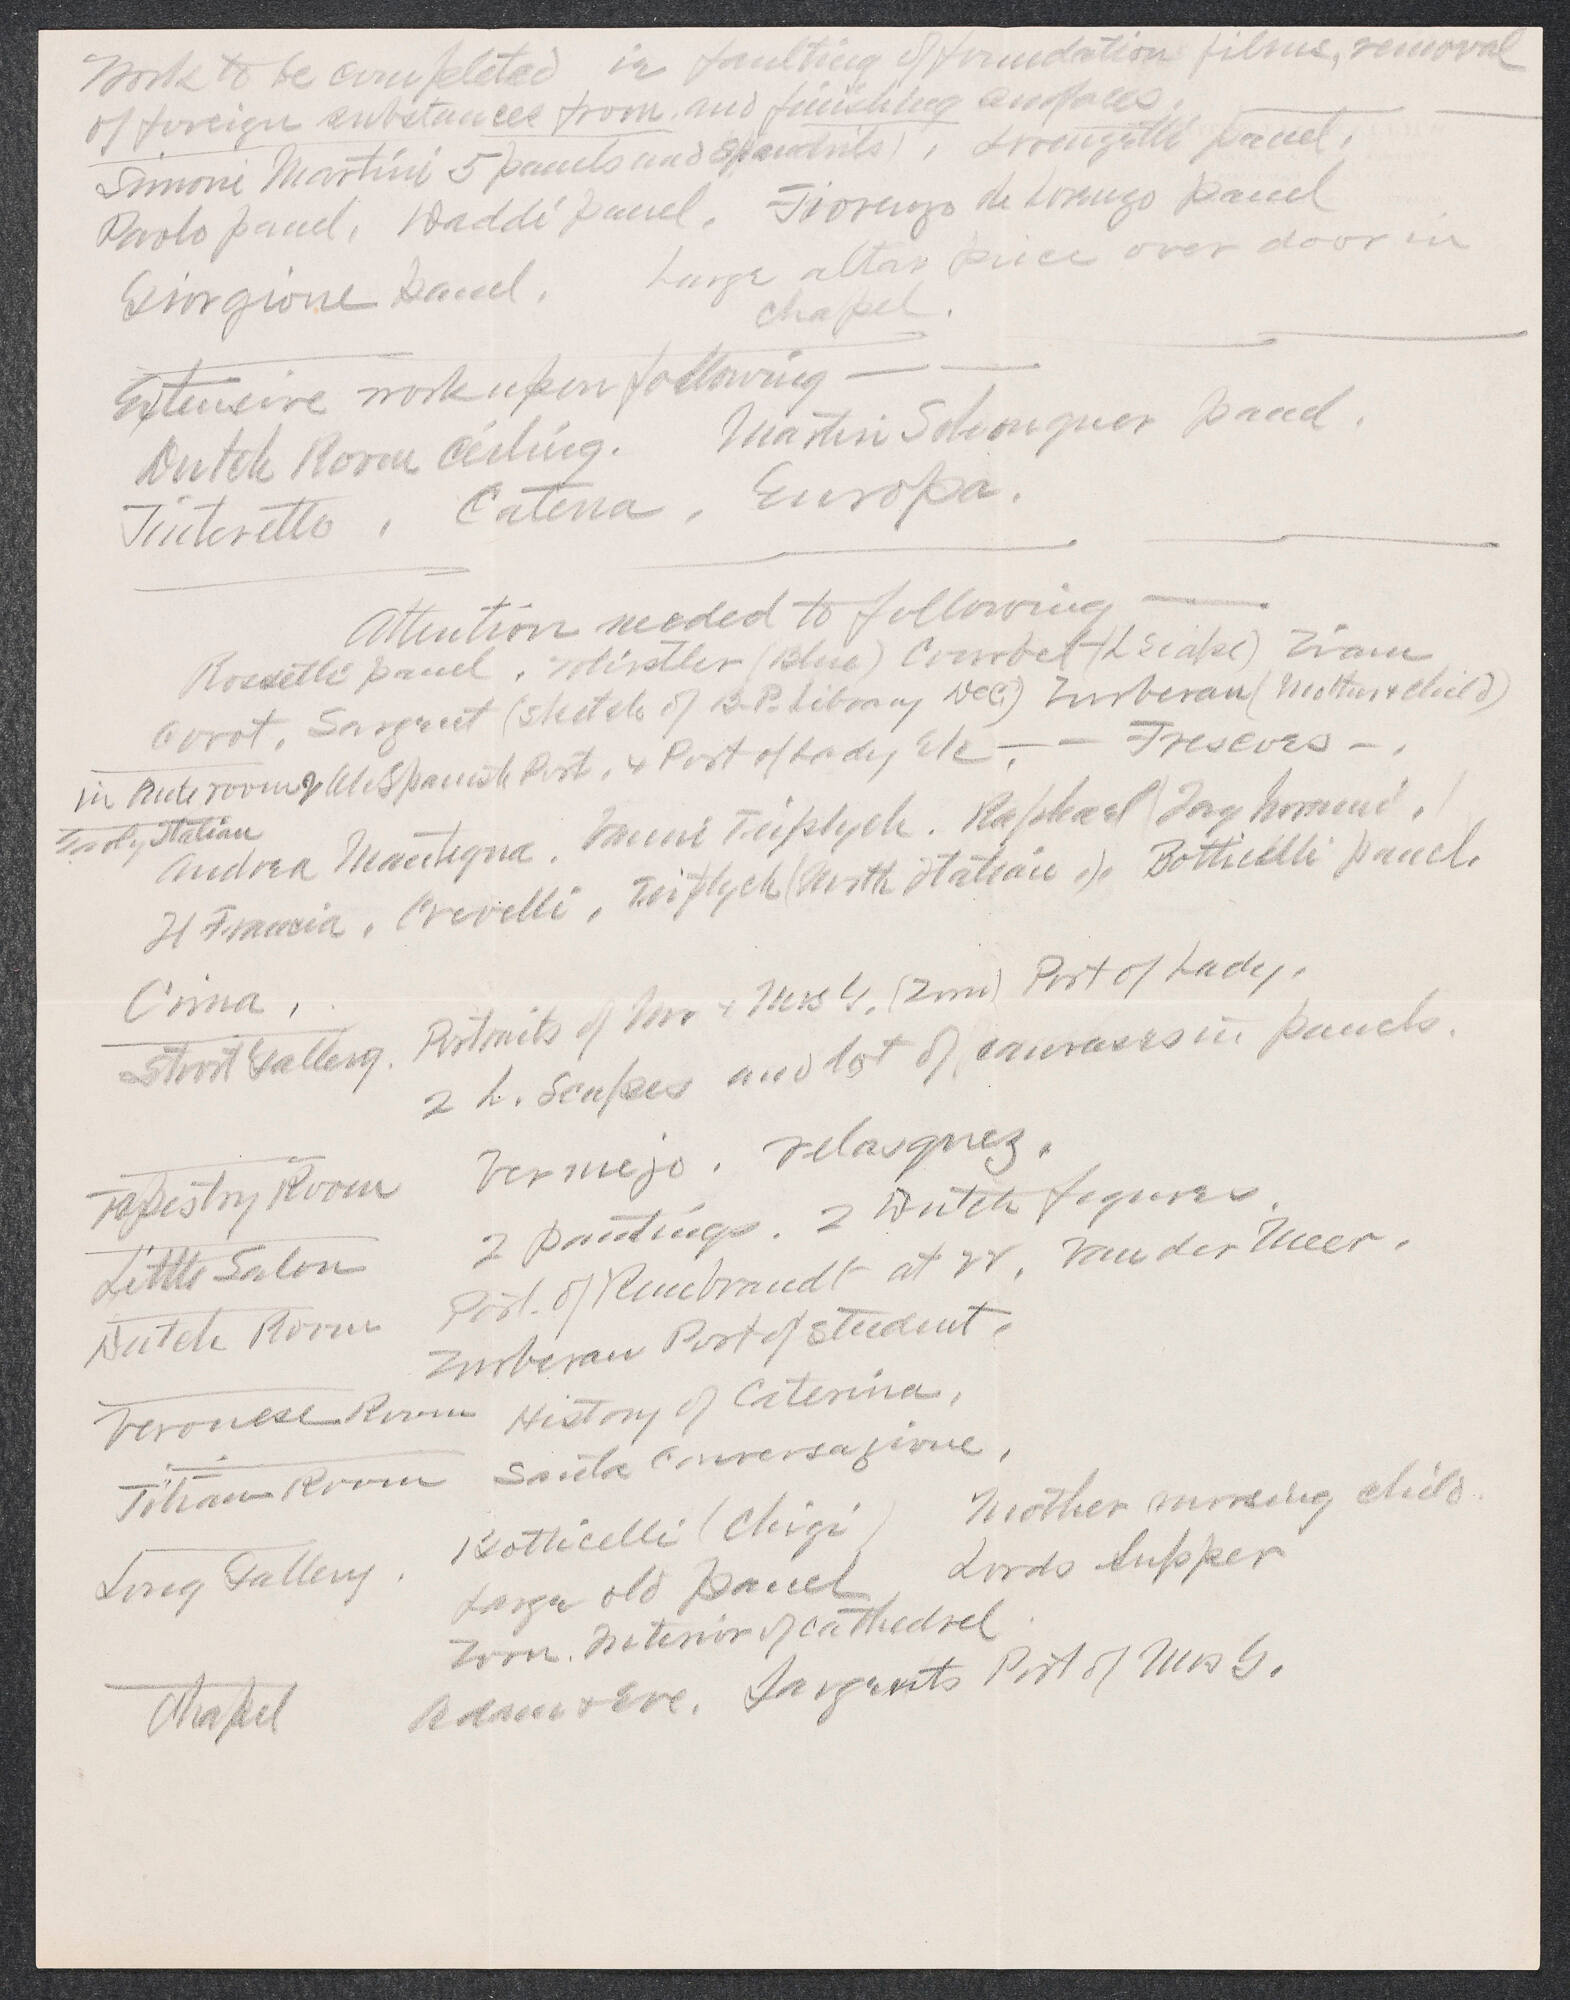 Work to be completed in faulting of foundation films, removal
of foreign substances from and finishing surfaces.
Simone Martini 5 panels and spandrils), Lorenzetti panel.
Paolo panel, Daddi panel, Fiorenzo de Lorenzo panel
Giorgione panel. Large altar piece over door in
chapel.
Extensive work upon following — —
Dutch Room Ceiling. Martin Schonguer panel.
Tinteretto, Catena, Europa.
Attention needed to following —
Rossetti panel, Whistler (Blue) Courbet (L Scape)
Corot, Sargent (Sketch of B. P. Library Dec) Zurberan (Mother & child)
in Ante room of Spanish Port, & Port of Lady Etc, — — Frescoes —.
Early Italian
Andrea Mantegna, Vanni Triptych. Raphael
H Francia, Crevelli, Triptych (North Italian), Botticelli panel.
Cima,
Short Gallery. Portraits of Mr & Mrs G. (Zorn) Port of Lady,
2 L. Scapes and lot of canvases in panels.
Tapestry Room Vermejo. Velasquez.
Little Salon 2 paintings. 2 Dutch figures.
Dutch Room Port. of Rembrandt at 22, Van der Meer.
Zurberan Port of Student.
Veronese Room History of Caterina,
Titian Room Santa Conversazione,
Long Gallery. Botticelli (Chigi) Mother nursing child.
Large old panel, Lords Supper
Zorn. Interior of Cathedrel
Chapel Adam & Eve. Sargents Port of Mrs G.